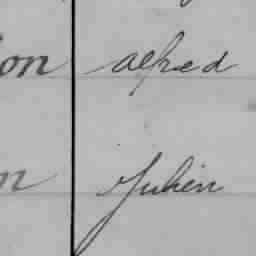 on alfred
n Julien